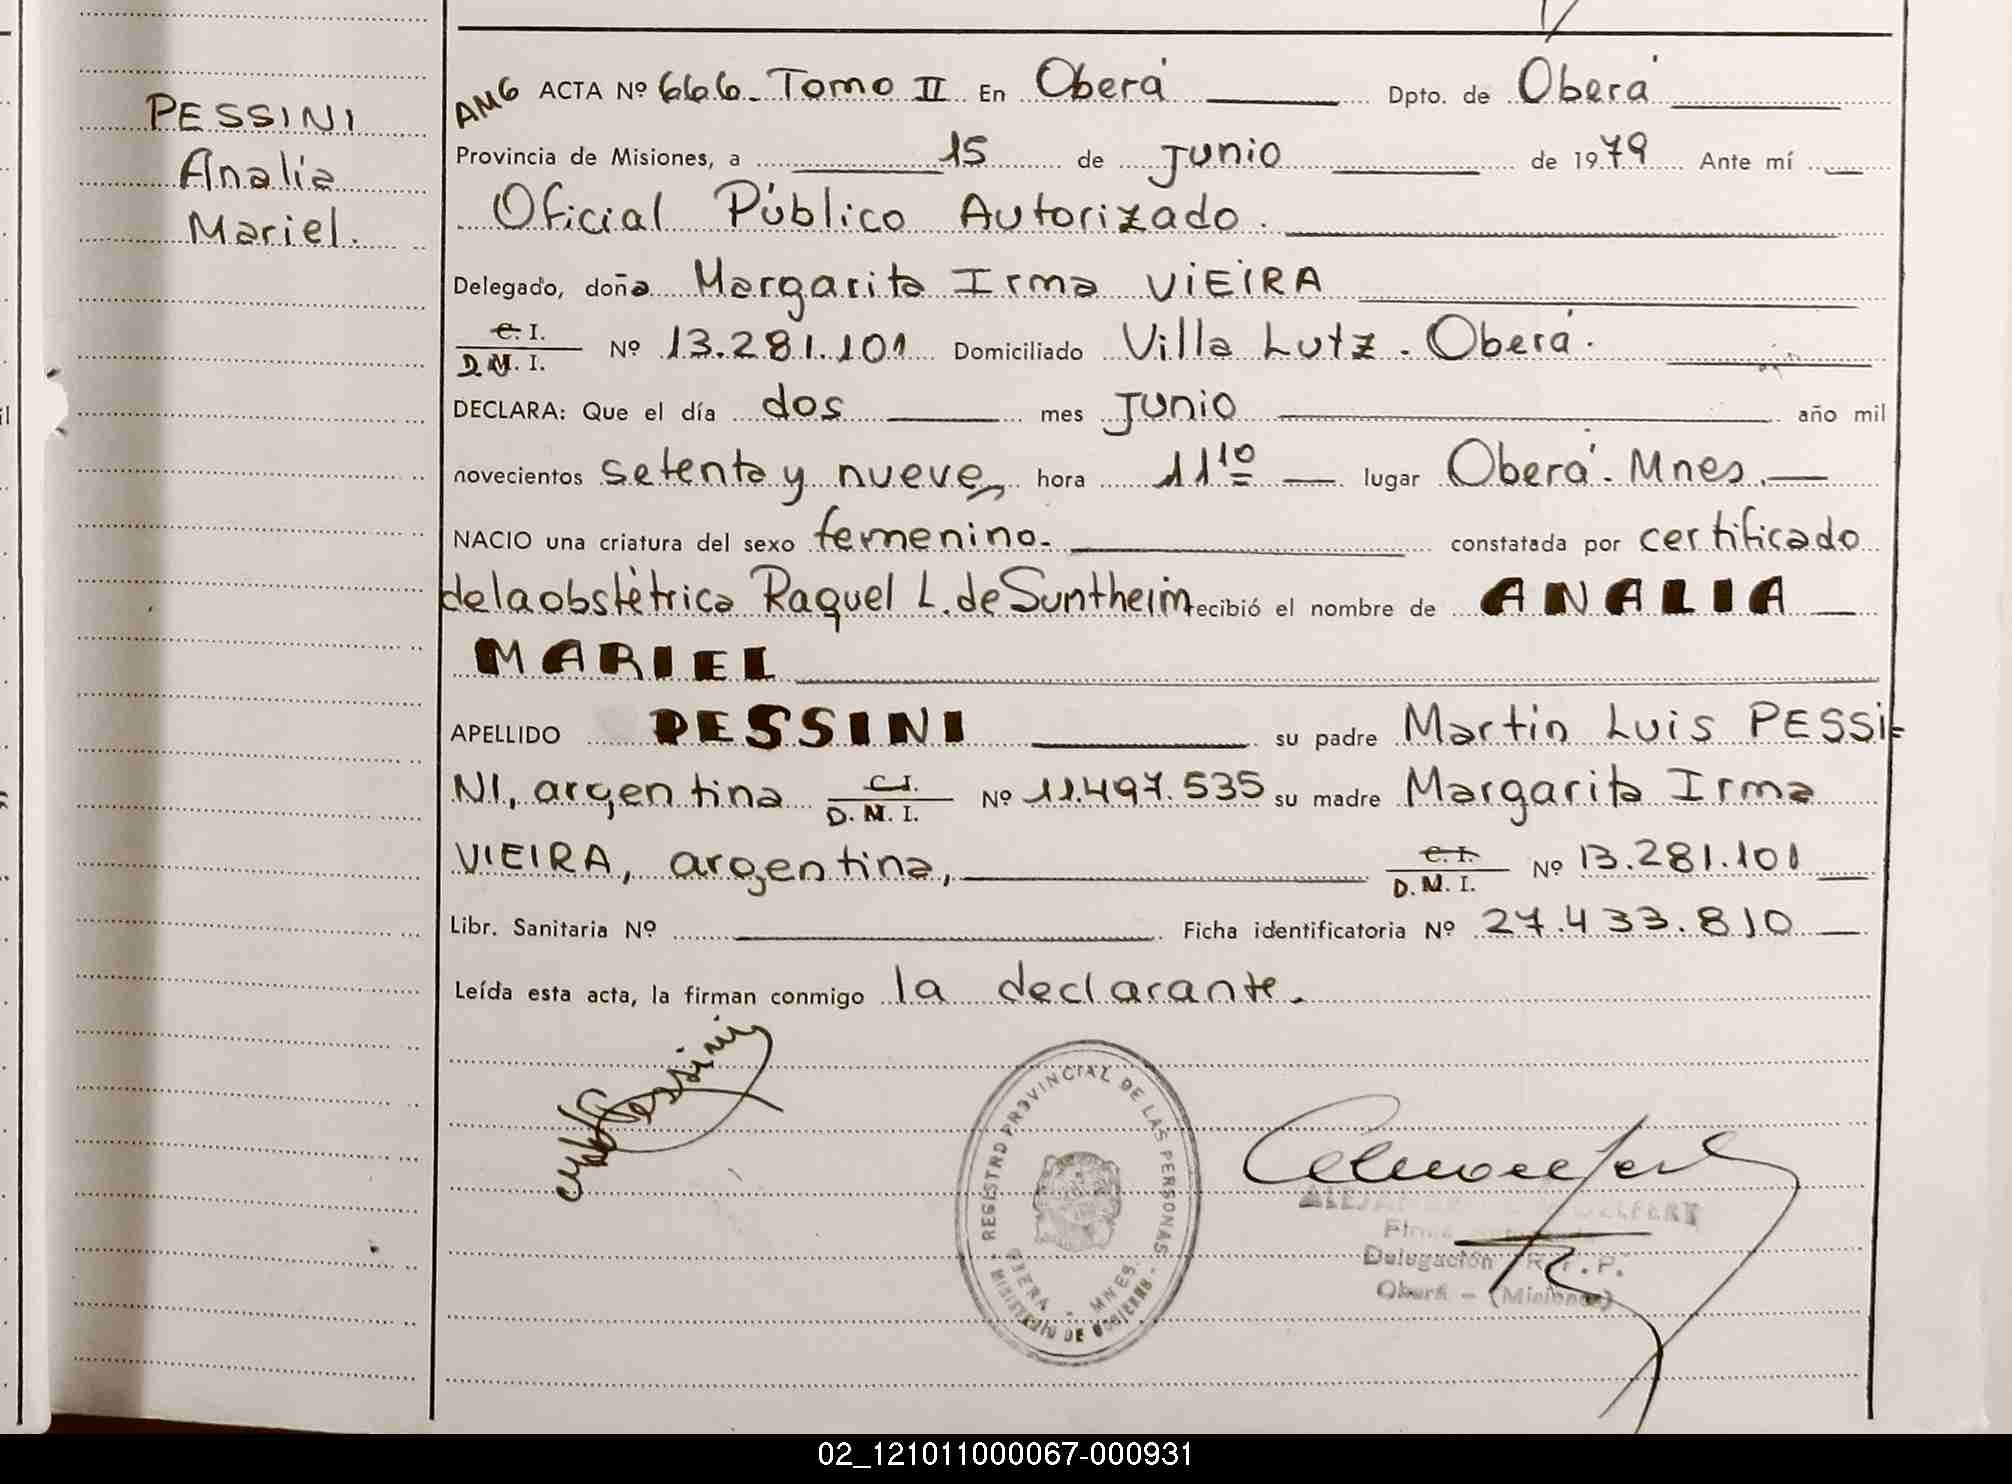 PESSINI
Analia
Mariel.
AMG ACTA Nº 666. Tomo II En Oberá Dpto. de Oberá
Provincia de Misiones, a 15 de Junio de 1979 Ante mí
Oficial Público Autorizado.
Delegado, doña Margarita Irma VIEIRA
C. I.
D. N. I. Nº 13.281.101 Domiciliado Villa Lutz. Oberá.
DECLARA: Que el día dos mes Junio año mil
novecientos setenta y nueve, hora 11 10 lugar Oberá. Mnes.
NACIO una criatura del sexo femenino. constatada por certificado
de la obstétrica Raquel L. de Suntheim recibió el nombre de ANALIA
MARIEL
APELLIDO PESSINI su padre Martin Luis PESSI-
NI, argentina C. I.
D. N. I. Nº 11.497.535 su madre Margarita Irma
VIEIRA, argentina, C. I.
D. N. I. Nº 13.281.101
Libr. Sanitaria Nº Ficha identificatoria Nº 27.433.810
Leída esta acta, la firman conmigo la declarante.
Pessini
REGISTRO PROVINCIAL DE LAS PERSONAS
OBERA - MNES.
MINISTERIO DE GOBIERNO
Delegación R. P. P.
Oberá - (Misiones)
02_121011000067-000931